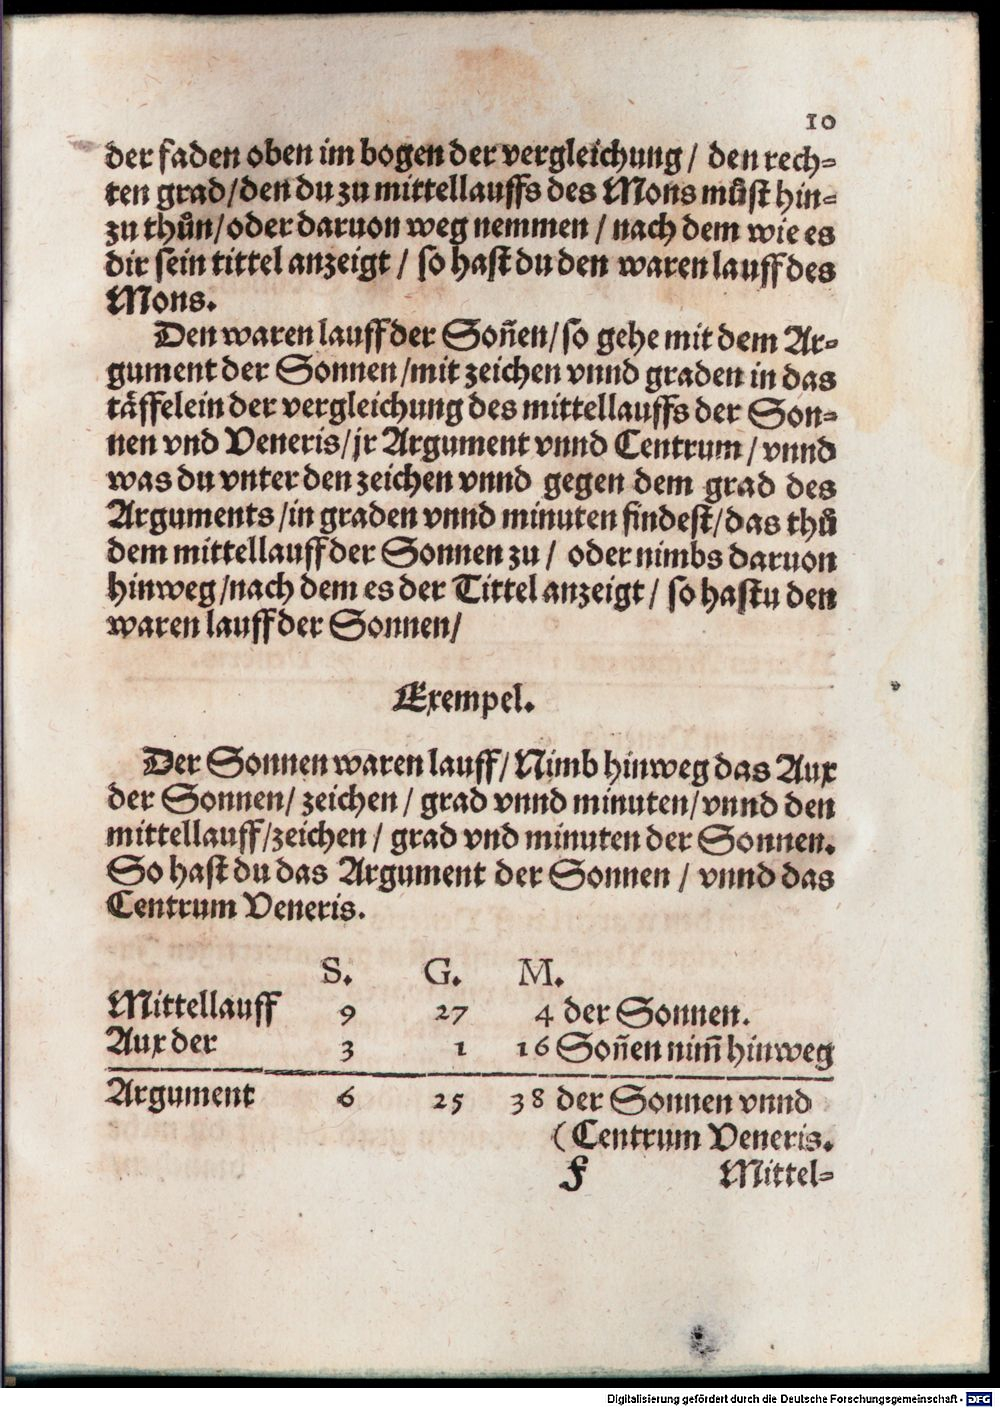 10
der faden oben im bogen der vergleichung / den rech⸗
ten grad/den du zu mittellauffs des Mons můst hin⸗
zu thůn/oder daruon weg nemmen / nach dem wie es
dir sein tittel anzeigt / so hast du den waren lauff des
Mons.
Den waren lauff der Soñen/so gehe mit dem Ar⸗
gument der Sonnen /mit zeichen vnnd graden in das
täffelein der vergleichung des mittellauffs der Son⸗
nen vnd Veneris/jr Argument vnnd Centrum / vnnd
was du vnter den zeichen vnnd gegen dem grad des
Arguments /in graden vnnd minuten findest/das thů
dem mittellauff der Sonnen zu / oder nimbs daruon
hinweg /nach dem es der Tittel anzeigt / so hastu den
waren lauff der Sonnen/
Exempel.
Der Sonnen waren lauff/ Nimb hinweg das Aux
der Sonnen/ zeichen / grad vnnd minuten/vnnd den
mittellauff/zeichen / grad vnd minuten der Sonnen.
So hast du das Argument der Sonnen / vnnd das
Centrum Veneris.
S. G. M.
Mittellauff 9 27 4 der Sonnen.
Aux der 3 1 16 Soñen nim̃ hinweg
Argument 6 25 38 der Sonnen vnnd
(Centrum Veneris.
F Mittel⸗
Digitalisierung gefördert durch die Deutsche Forschungsgemeinschaft - DFG